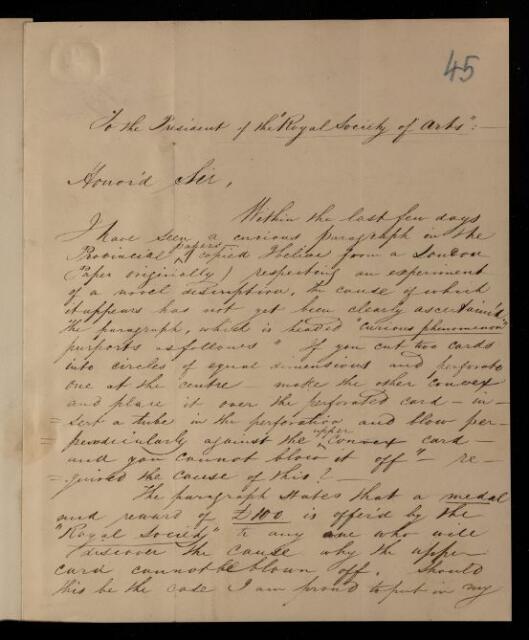 45
To the President of the "Royal Society of Arts":—
Honor'd Sir,
Within the last few days
I have seen a curious paragraph in the
Provincial papers copied I believe from a London
Paper originally) respecting an experiment
of a novel description, the cause of which
it appears has not yet been clearly ascertain'd.
The paragraph, which is headed "Curious phenomenon"
purports as follows "If you cut two cards
into circles of equal dimensions and perforate
one at the centre — make the other convex
and place it over the perforated card — in=
=sert a tube in the perforation and blow per=
=pendicularly against the upper convex card —
and you cannot blow it off" — re=
=quired the cause of this? —
The paragraph states that a medal
and reward of £100 is offer'd by the
"Royal Society" to any one who will
discover the cause why the upper
card cannot be blown off. Should
this be the case I am proud to put in my